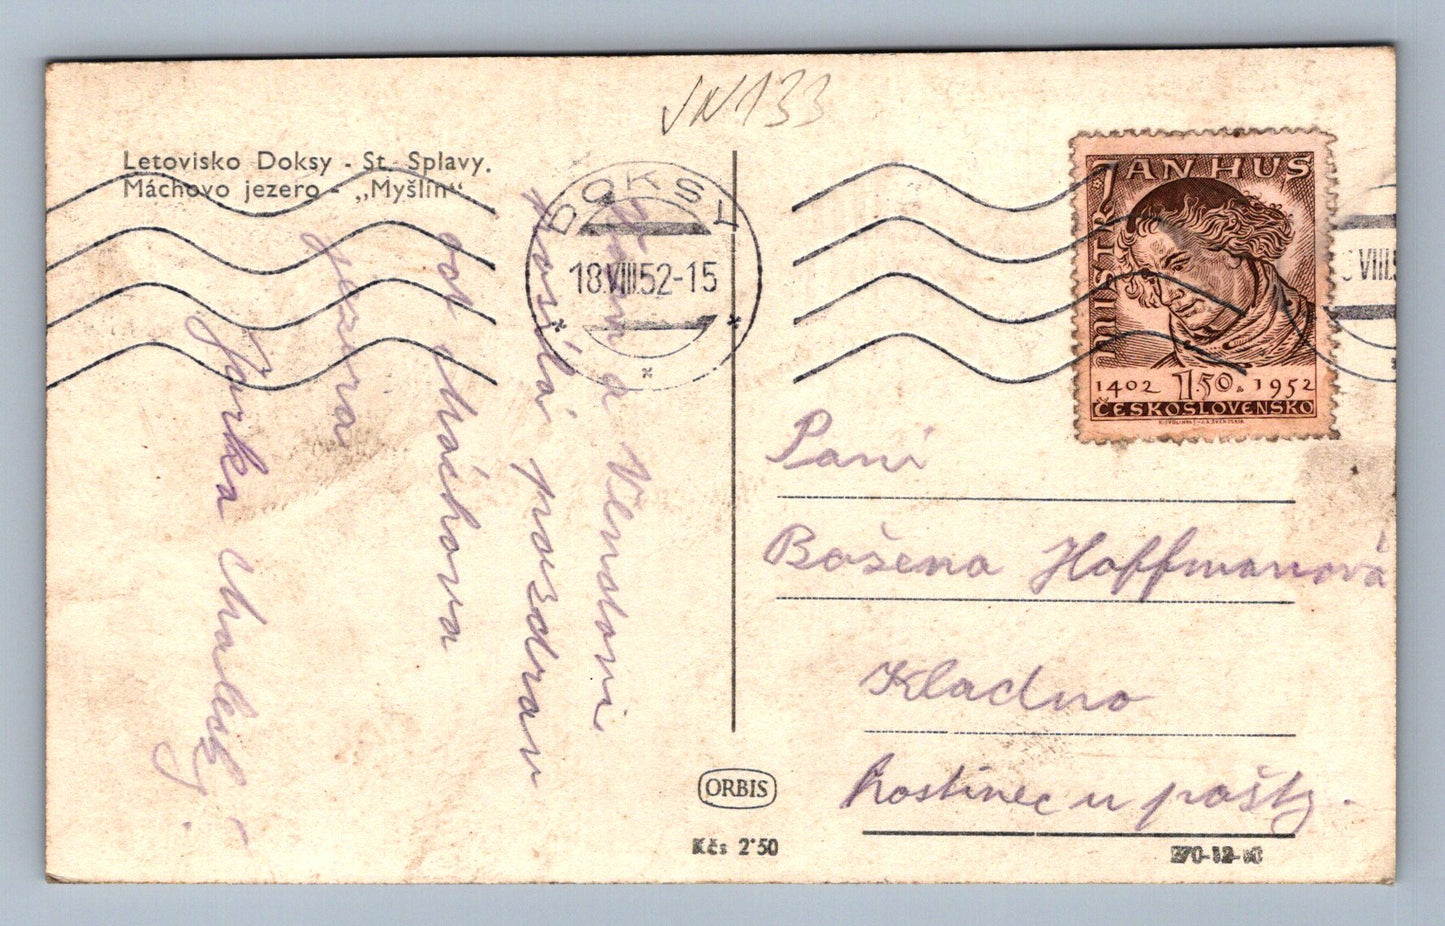 JN133
Letovisko Doksy - St. Splavy.
Máchovo jezero - „Myšlín“
DOKSY
18.VIII.52-15
VIII.5
MISTR JAN HUS
1402 1.50 1952
ČESKOSLOVENSKO
a Věnouši
posílá pozdrav
od Máchova
jezera
Jarka
Paní
Božena Hoffmanová
Kladno
hostinec u pošty.
ORBIS
Kčs 2·50